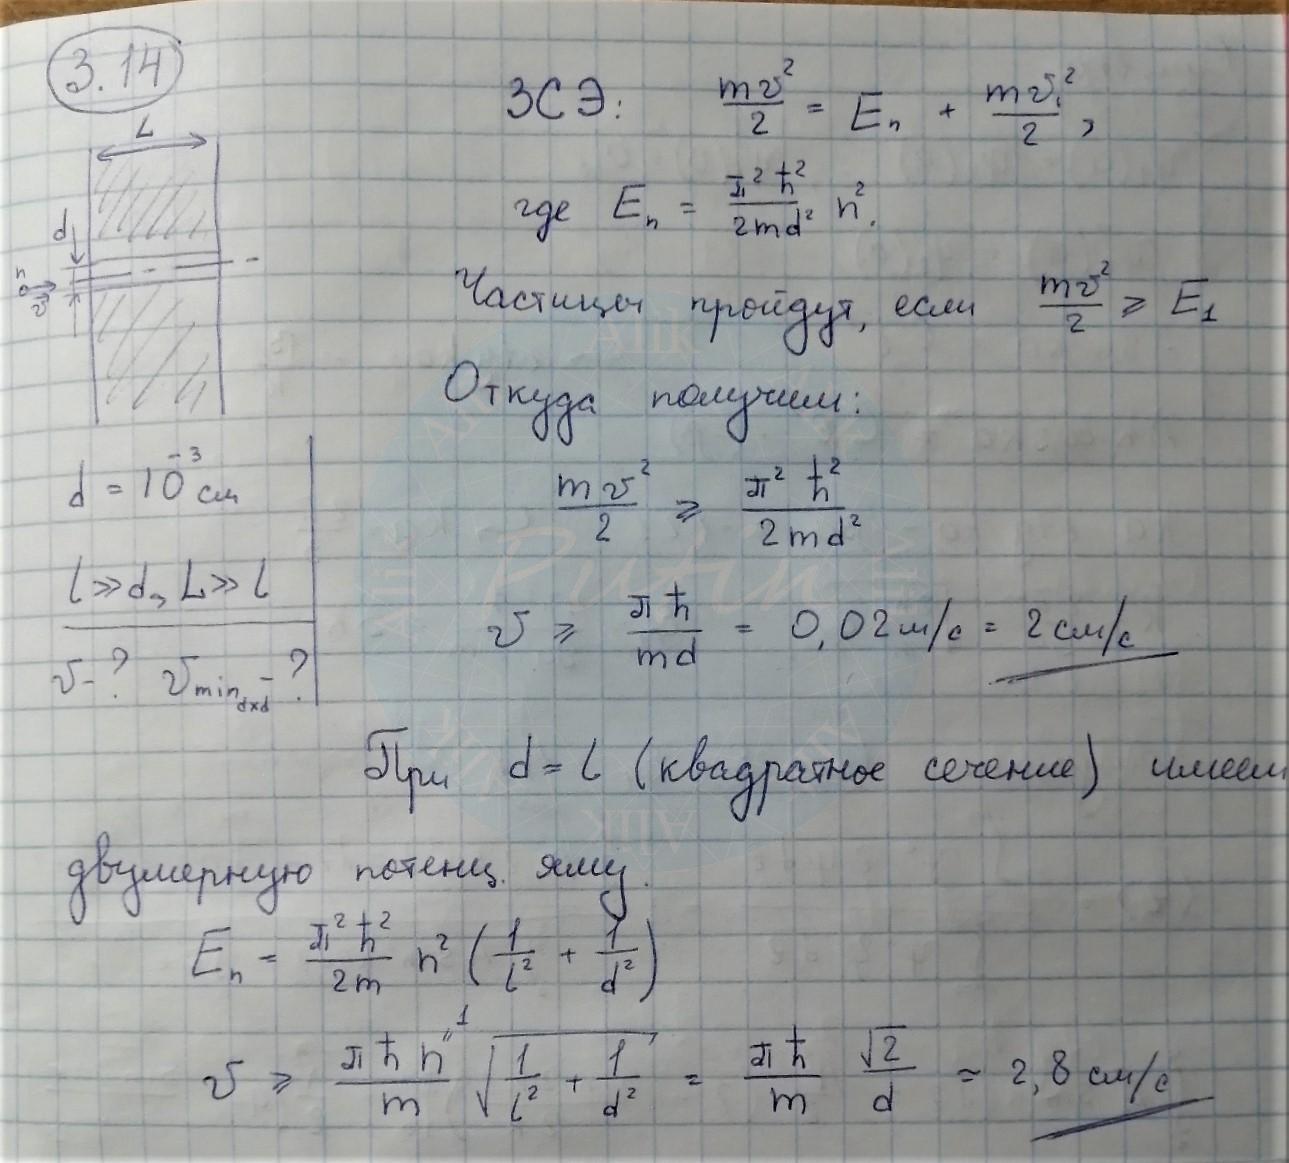 3.14
L
d
n
v
d = 10⁻³ см
l ≫ d, L ≫ l
v - ? v_min_dxd - ?
ЗСЭ: mv²/2 = Eₙ + mv₁²/2,
где Eₙ = π²ħ²/2md² n².
Частицы пройдут, если mv²/2 ⩾ E₁
Откуда получим:
mv²/2 ⩾ π²ħ²/2md²
v ⩾ πħ/md = 0,02 м/с = 2 см/с
При d = l (квадратное сечение) имеем
двумерную потенц. яму.
Eₙ = π²ħ²/2m n² (1/l² + 1/d²)
v ⩾ πħn/m √(1/l² + 1/d²) = πħ/m √2/d ≈ 2,8 см/с
1
Putin
АПК